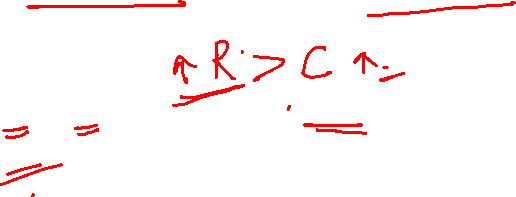 ↑ R > C ↑